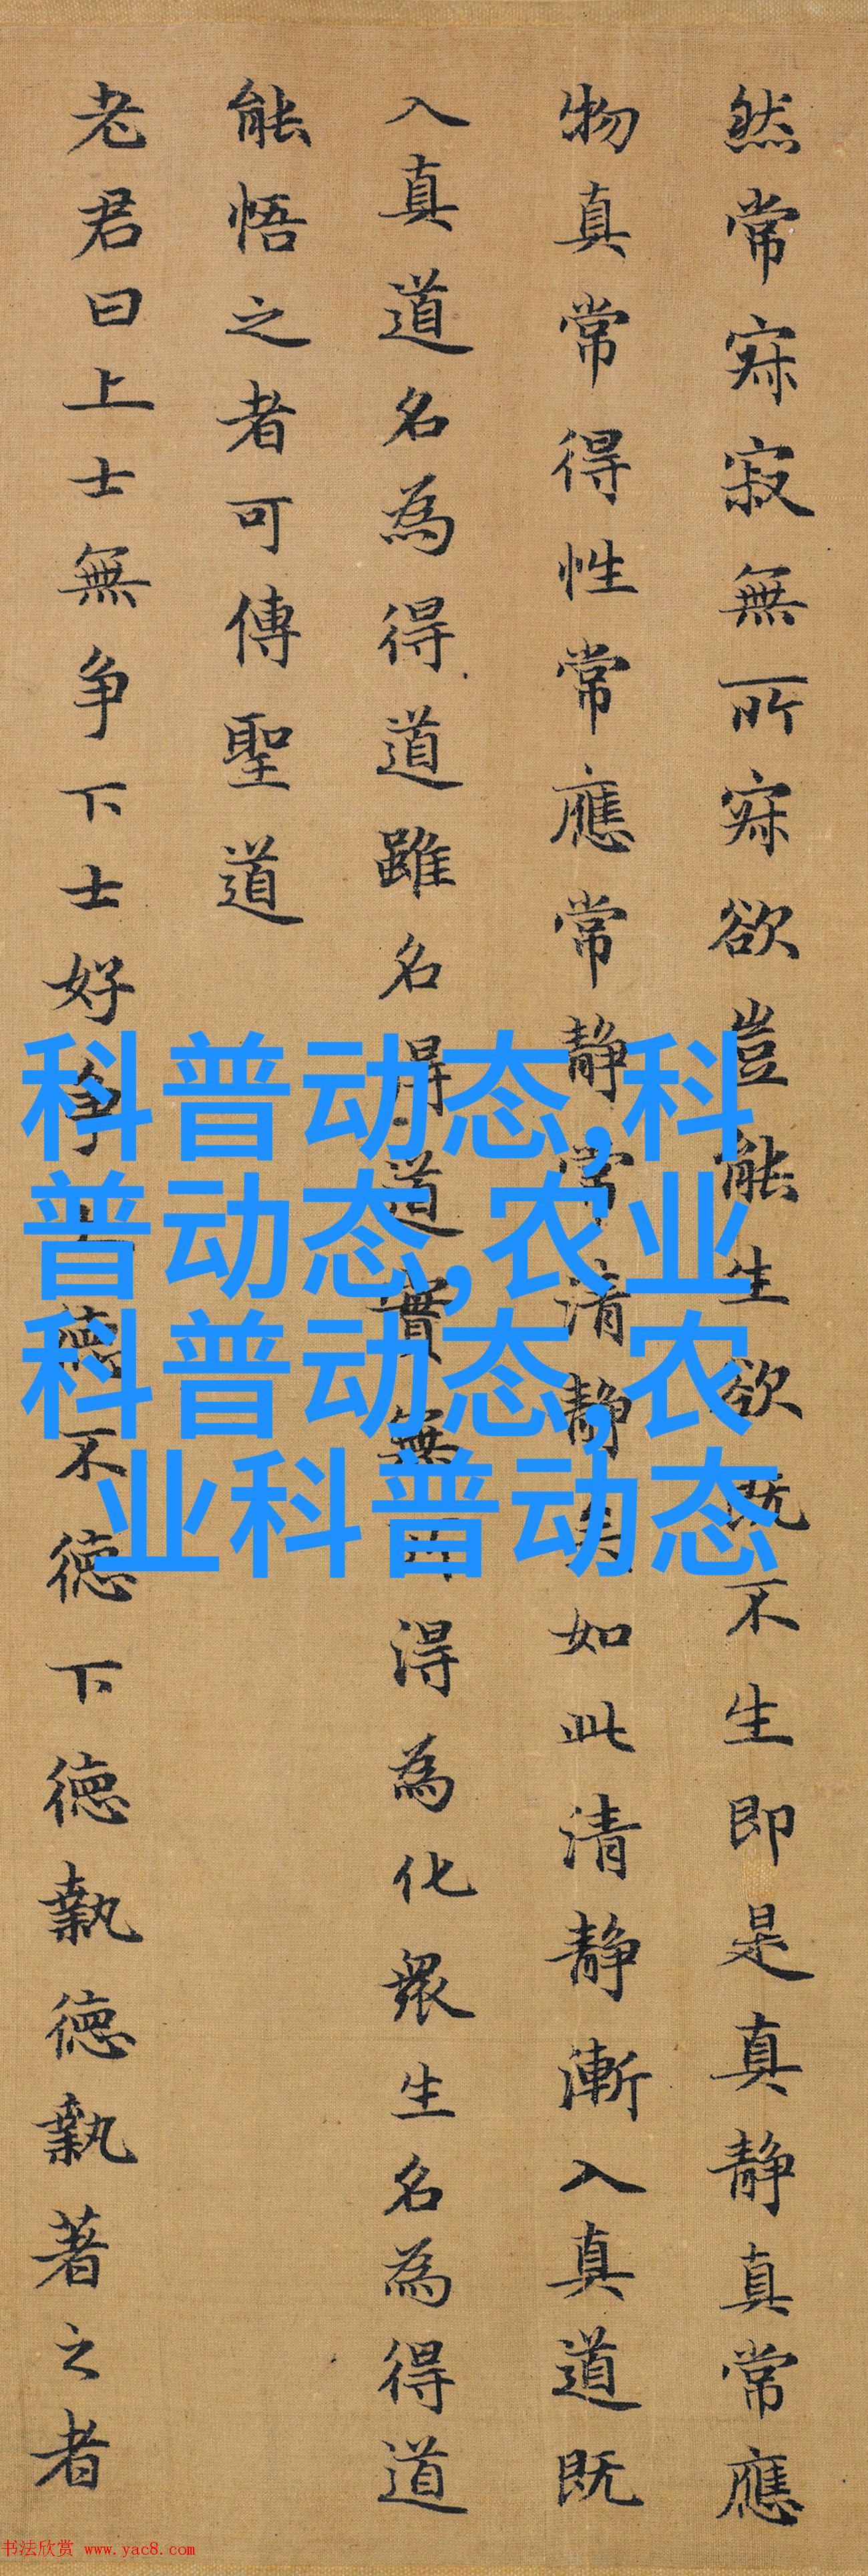 然常寂寂無所寂欲豈能生欲既不生即是真静真常應
物真常得性常應常静常清静矣如此清静漸入真道既
入真道名為得道雖名得道實無所得為化衆生名為得道
能悟之者可傳聖道
老君曰上士無争下士好争上德不德下德執德執著之者
科普动态,科
普动态,农业
科普动态,农
业科普动态
书法欣赏 www.yac8.com